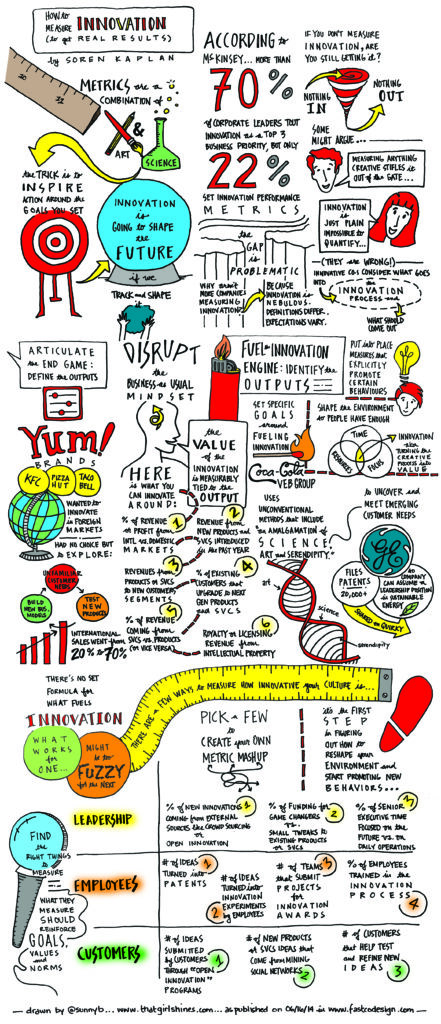 HOW to
MEASURE INNOVATION
(to get REAL RESULTS)
by SOREN KAPLAN
30
31
METRICS are a
COMBINATION of
ART
&
SCIENCE
the TRICK is to
INSPIRE
ACTION AROUND the
GOALS YOU SET
INNOVATION
is
GOING to SHAPE
the
FUTURE
if we
TRACK and SHAPE
it
ACCORDING to
MCKINSEY... MORE THAN
70%
of CORPORATE LEADERS TOUT
INNOVATION as a TOP 3
BUSINESS PRIORITY, BUT ONLY
22%
SET INNOVATION PERFORMANCE
METRICS
the
GAP
is
PROBLEMATIC
WHY AREN'T
MORE COMPANIES
MEASURING
INNOVATION?
BECAUSE
INNOVATION is
NEBULOUS.
DEFINITIONS DIFFER.
EXPECTATIONS VARY.
IF YOU DON'T MEASURE
INNOVATION, ARE
YOU STILL GETTING it?
NOTHING
IN
NOTHING
OUT
SOME
MIGHT ARGUE...
MEASURING ANYTHING
CREATIVE STIFLES it
OUT of the GATE...
INNOVATION
is JUST PLAIN
IMPOSSIBLE to
QUANTIFY...
(THEY are WRONG!)
INNOVATIVE COS CONSIDER WHAT GOES
INTO the
INNOVATION
PROCESS and
WHAT SHOULD
COME OUT
ARTICULATE
the END GAME:
DEFINE the OUTPUTS
Yum!
BRANDS
KFC
PIZZA
HUT
TACO
BELL
WANTED to
INNOVATE
in FOREIGN
MARKETS
HAD NO CHOICE BUT
to EXPLORE:
UNFAMILIAR
CUSTOMER
NEEDS
BUILD
NEW BUS.
MODELS
TEST
NEW
PRODUCTS
INTERNATIONAL
SALES WENT from
20% to 70%
DISRUPT
the
BUSINESS as USUAL
MINDSET
HERE
is WHAT YOU
CAN INNOVATE
AROUND:
the
VALUE
of the
INNOVATION
is MEASURABLY
TIED to the
OUTPUT
1
% of REVENUE
or PROFIT from
INTL vs. DOMESTIC
MARKETS
2
REVENUE from
NEW PRODUCTS and
SVCS INTRODUCED
in the PAST YEAR
3
REVENUES from
PRODUCTS or SVCS
to NEW CUSTOMER
SEGMENTS
4
% of EXISTING
CUSTOMERS that
UPGRADE to NEXT
GEN PRODUCTS
and SVCS
5
% of REVENUE
COMING from
SVCS vs. PRODUCTS
(or VICE VERSA)
6
ROYALTY or LICENSING
REVENUE from
INTELLECTUAL PROPERTY
FUEL the INNOVATION
ENGINE: IDENTIFY the
OUTPUTS
SET SPECIFIC
GOALS
around
FUELING
INNOVATION
PUT into PLACE
MEASURES that
EXPLICITLY
PROMOTE
CERTAIN
BEHAVIOURS
SHAPE the ENVIRONMENT
to PEOPLE HAVE ENOUGH
TIME
RESOURCES
FOCUS
INNOVATION
aka
TURNING the
CREATIVE
PROCESS into
VALUE
Coca-Cola
VEB GROUP
USES
UNCONVENTIONAL
METHODS that INCLUDE
"an AMALGAMATION of
SCIENCE,
ART and SERENDIPITY."
art
science
serendipity
to UNCOVER and
MEET EMERGING
CUSTOMER NEEDS
GE
FILES
PATENTS
20,000+
so
COMPANY
CAN ASSUME a
LEADERSHIP POSITION
in SUSTAINABLE
ENERGY
SHARED on QUIRKY
THERE'S NO SET
FORMULA for
WHAT FUELS
INNOVATION
WHAT
WORKS
for
ONE...
MIGHT
be too
FUZZY
for the NEXT
THERE ARE a FEW WAYS to MEASURE HOW INNOVATIVE your CULTURE is...
PICK a FEW
to
CREATE YOUR OWN
METRIC MASHUP
it's the FIRST
STEP
in FIGURING
OUT HOW to
RESHAPE your
ENVIRONMENT and
START PROMOTING NEW
BEHAVIORS...
FIND
the
RIGHT THINGS
to
MEASURE
WHAT THEY
MEASURE
SHOULD
REINFORCE
GOALS,
VALUES and
NORMS
LEADERSHIP
% of NEW INNOVATIONS 1
COMING from EXTERNAL
SOURCES like CROWD SOURCING
or
OPEN INNOVATION
% of FUNDING for
GAME CHANGERS 2
vs.
SMALL TWEAKS to
EXISTING PRODUCTS
or SVCS
% of SENIOR 3
EXECUTIVE TIME
FOCUSED on the
FUTURE vs. on
DAILY OPERATIONS
EMPLOYEES
# of IDEAS 1
TURNED into
PATENTS
# of IDEAS
TURNED into
INNOVATION
2 EXPERIMENTS
by EMPLOYEES
# of TEAMS 3
that SUBMIT
PROJECTS
for
INNOVATION
AWARDS
% of EMPLOYEES
TRAINED in the
INNOVATION
PROCESS 4
CUSTOMERS
# of IDEAS
SUBMITTED by
CUSTOMERS 1
THROUGH "OPEN
INNOVATION"
PROGRAMS
# of NEW PRODUCTS
or SVCS IDEAS that
COME from MINING
SOCIAL NETWORKS 2
# of CUSTOMERS
that HELP TEST
and REFINE NEW
IDEAS 3
— drawn by @sunnyb... www.thatgirlshines.com... as published on 06/16/14 in www.fastcodesign.com —